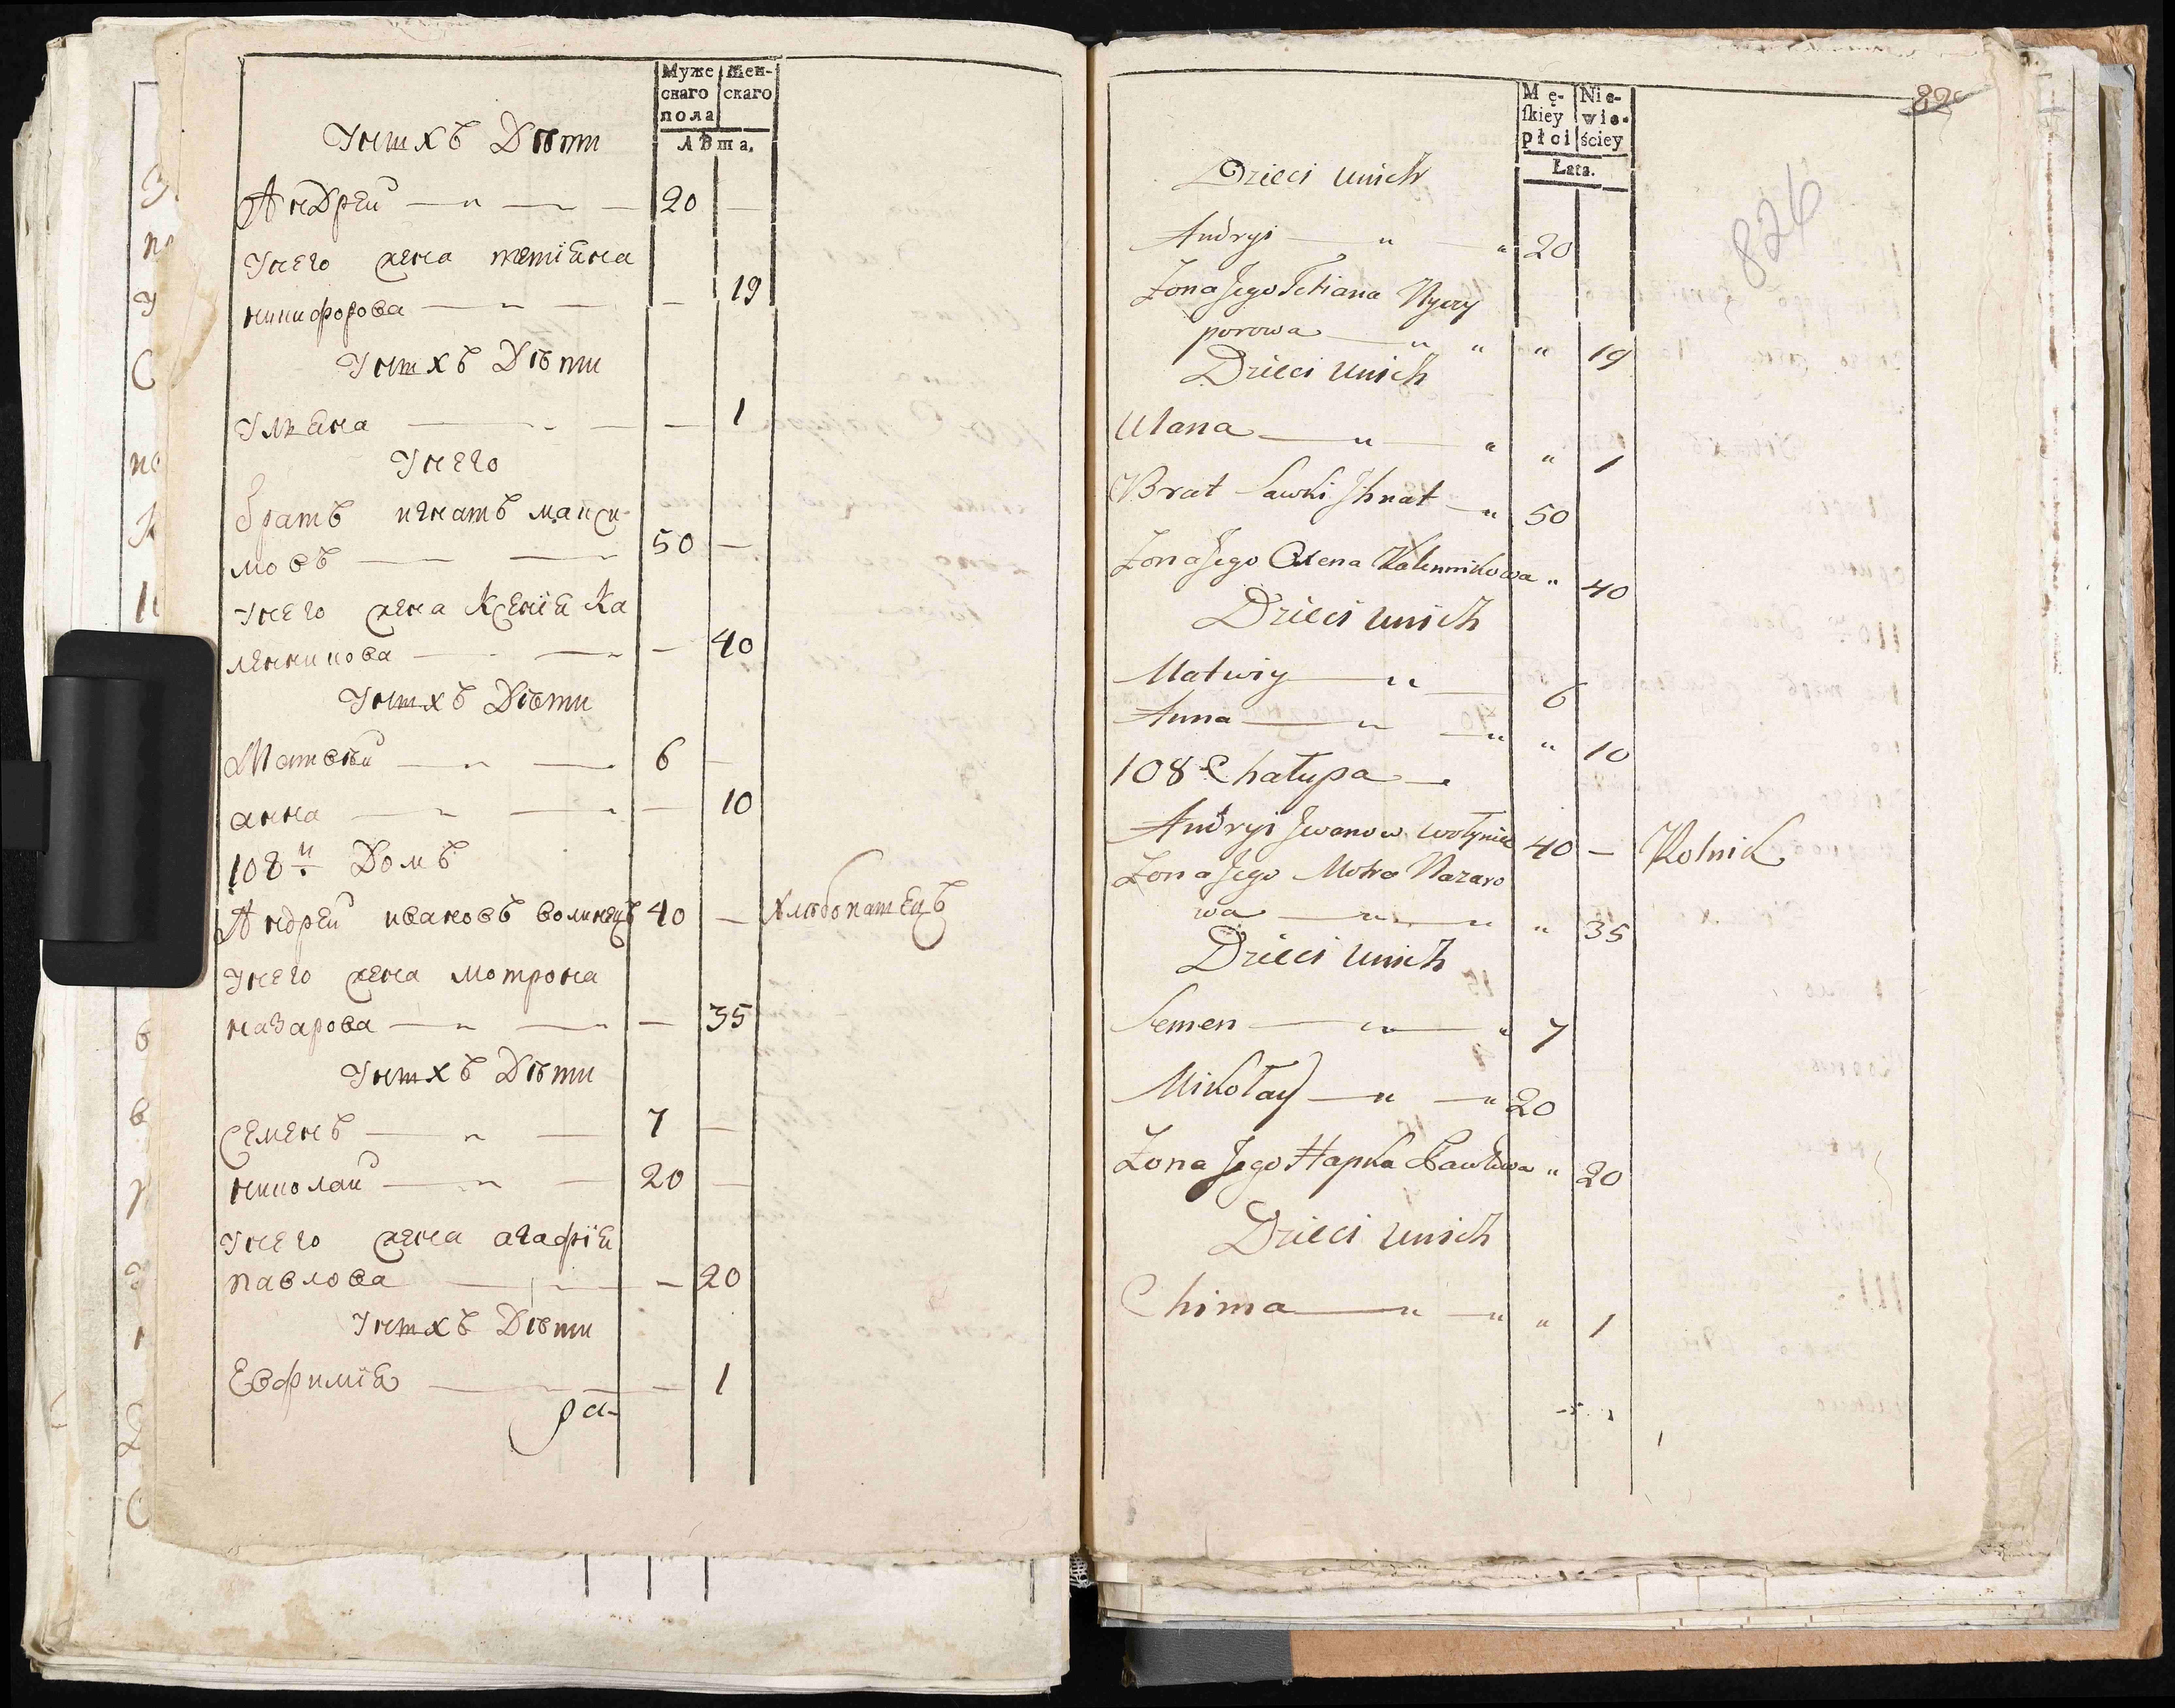 Муже
скаго
пола
Жен-
скаго
Лѣта.
У нихъ Дѣти
Андрей 20 —
У него жена тетіяна
никифорова — 19
У нихъ Дѣти
Ульяна — 1
У него
братъ игнатъ макси-
мовъ 50 —
У него жена Ксенія Ка
ленникова — 40
У нихъ Дѣти
Матвѣй 6 —
анна — 10
108й Домъ
Андрей ивановъ волинецъ 40 — Хлѣбопашецъ
У него жена мотрона
назарова — 35
У нихъ Дѣти
Семенъ 7 —
николай 20 —
У него жена агафія
павлова — 20
У нихъ Дѣти
Евфимія — 1
Mę-
ſkiey
płci
Nie-
wie-
ściey
Łata.
826
Dzieci unich
Andryi 20
Żona Jego Tetiana Nyczy
porowa " 19
Dzieci unich
Ulana " 1
Brat Sawki Jhnat 50
Żona Jego Oxena Kalennikowa " 40
Dzieci unich
Matwiy 6
Anna " 10
108 Chałupa
Andryi Jwanow Wołyniec 40 — Rolnik
Żona Jego Motra Nazaro
wa " 35
Dzieci unich
Semen 7
Mikołay 20
Żona Jego Hapka Pawłowa " 20
Dzieci unich
Chima " 1